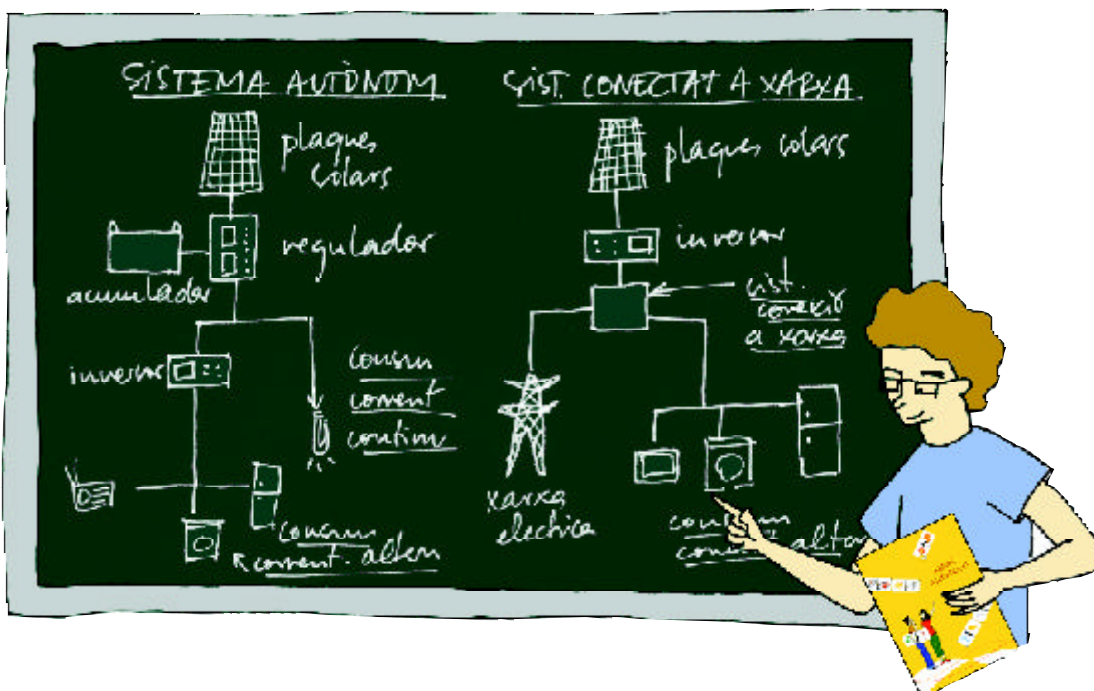 SISTEMA AUTÒNOM
plaques
solars
regulador
acumulador
inversor
consum
corrent
continu
consum
corrent. altern
SIST. CONECTAT A XARXA
plaques solars
inversor
sist.
conexió
a xarxa
xarxa
electrica
consum
altern